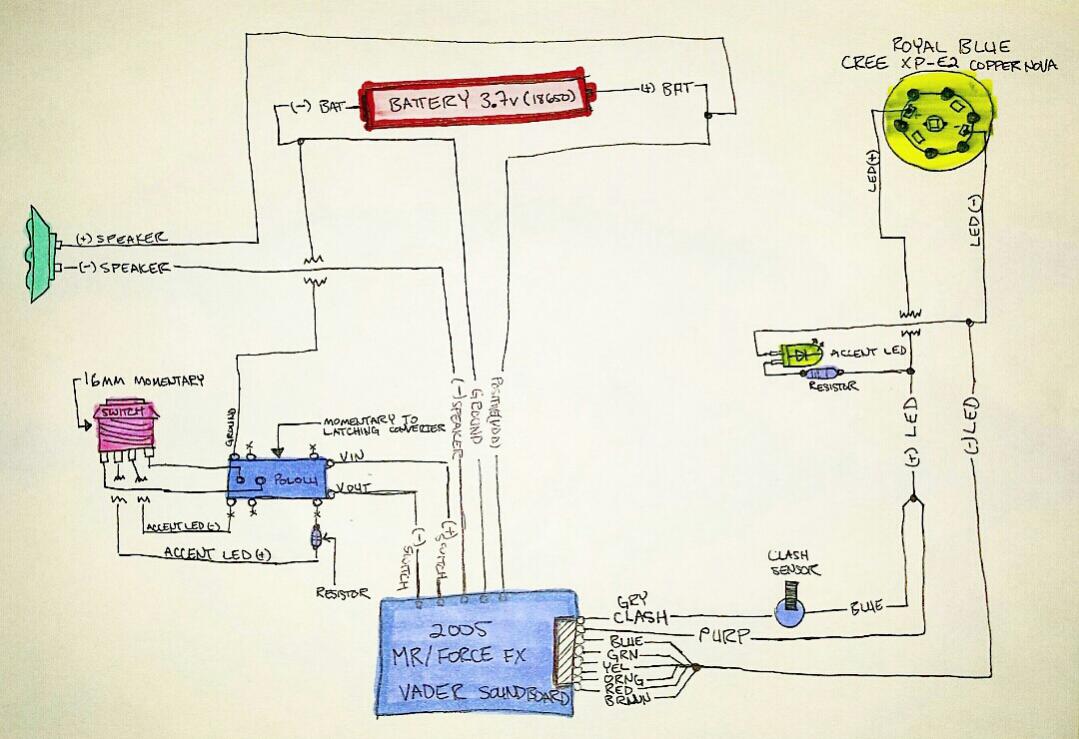 ROYAL BLUE
CREE XP-E2 COPPER NOVA
(-) BAT
BATTERY 3.7V (18650)
(+) BAT
LED(+)
LED(-)
(+) SPEAKER
(-) SPEAKER
16MM MOMENTARY
SWITCH
GROUND
MOMENTARY TO
LATCHING CONVERTER
X
X
VIN
POLOLU
VOUT
X
X
X
ACCENT LED(-)
ACCENT LED(+)
RESISTOR
(-) SPEAKER
GROUND
POSITIVE(VDD)
(-)
SWITCH
(+)
SWITCH
ACCENT LED
RESISTOR
(+) LED
(-) LED
CLASH
SENSOR
BLUE
GRY
CLASH
PURP
BLUE
GRN
YEL
ORNG
RED
BRWN
2005
MR/FORCE FX
VADER SOUNDBOARD